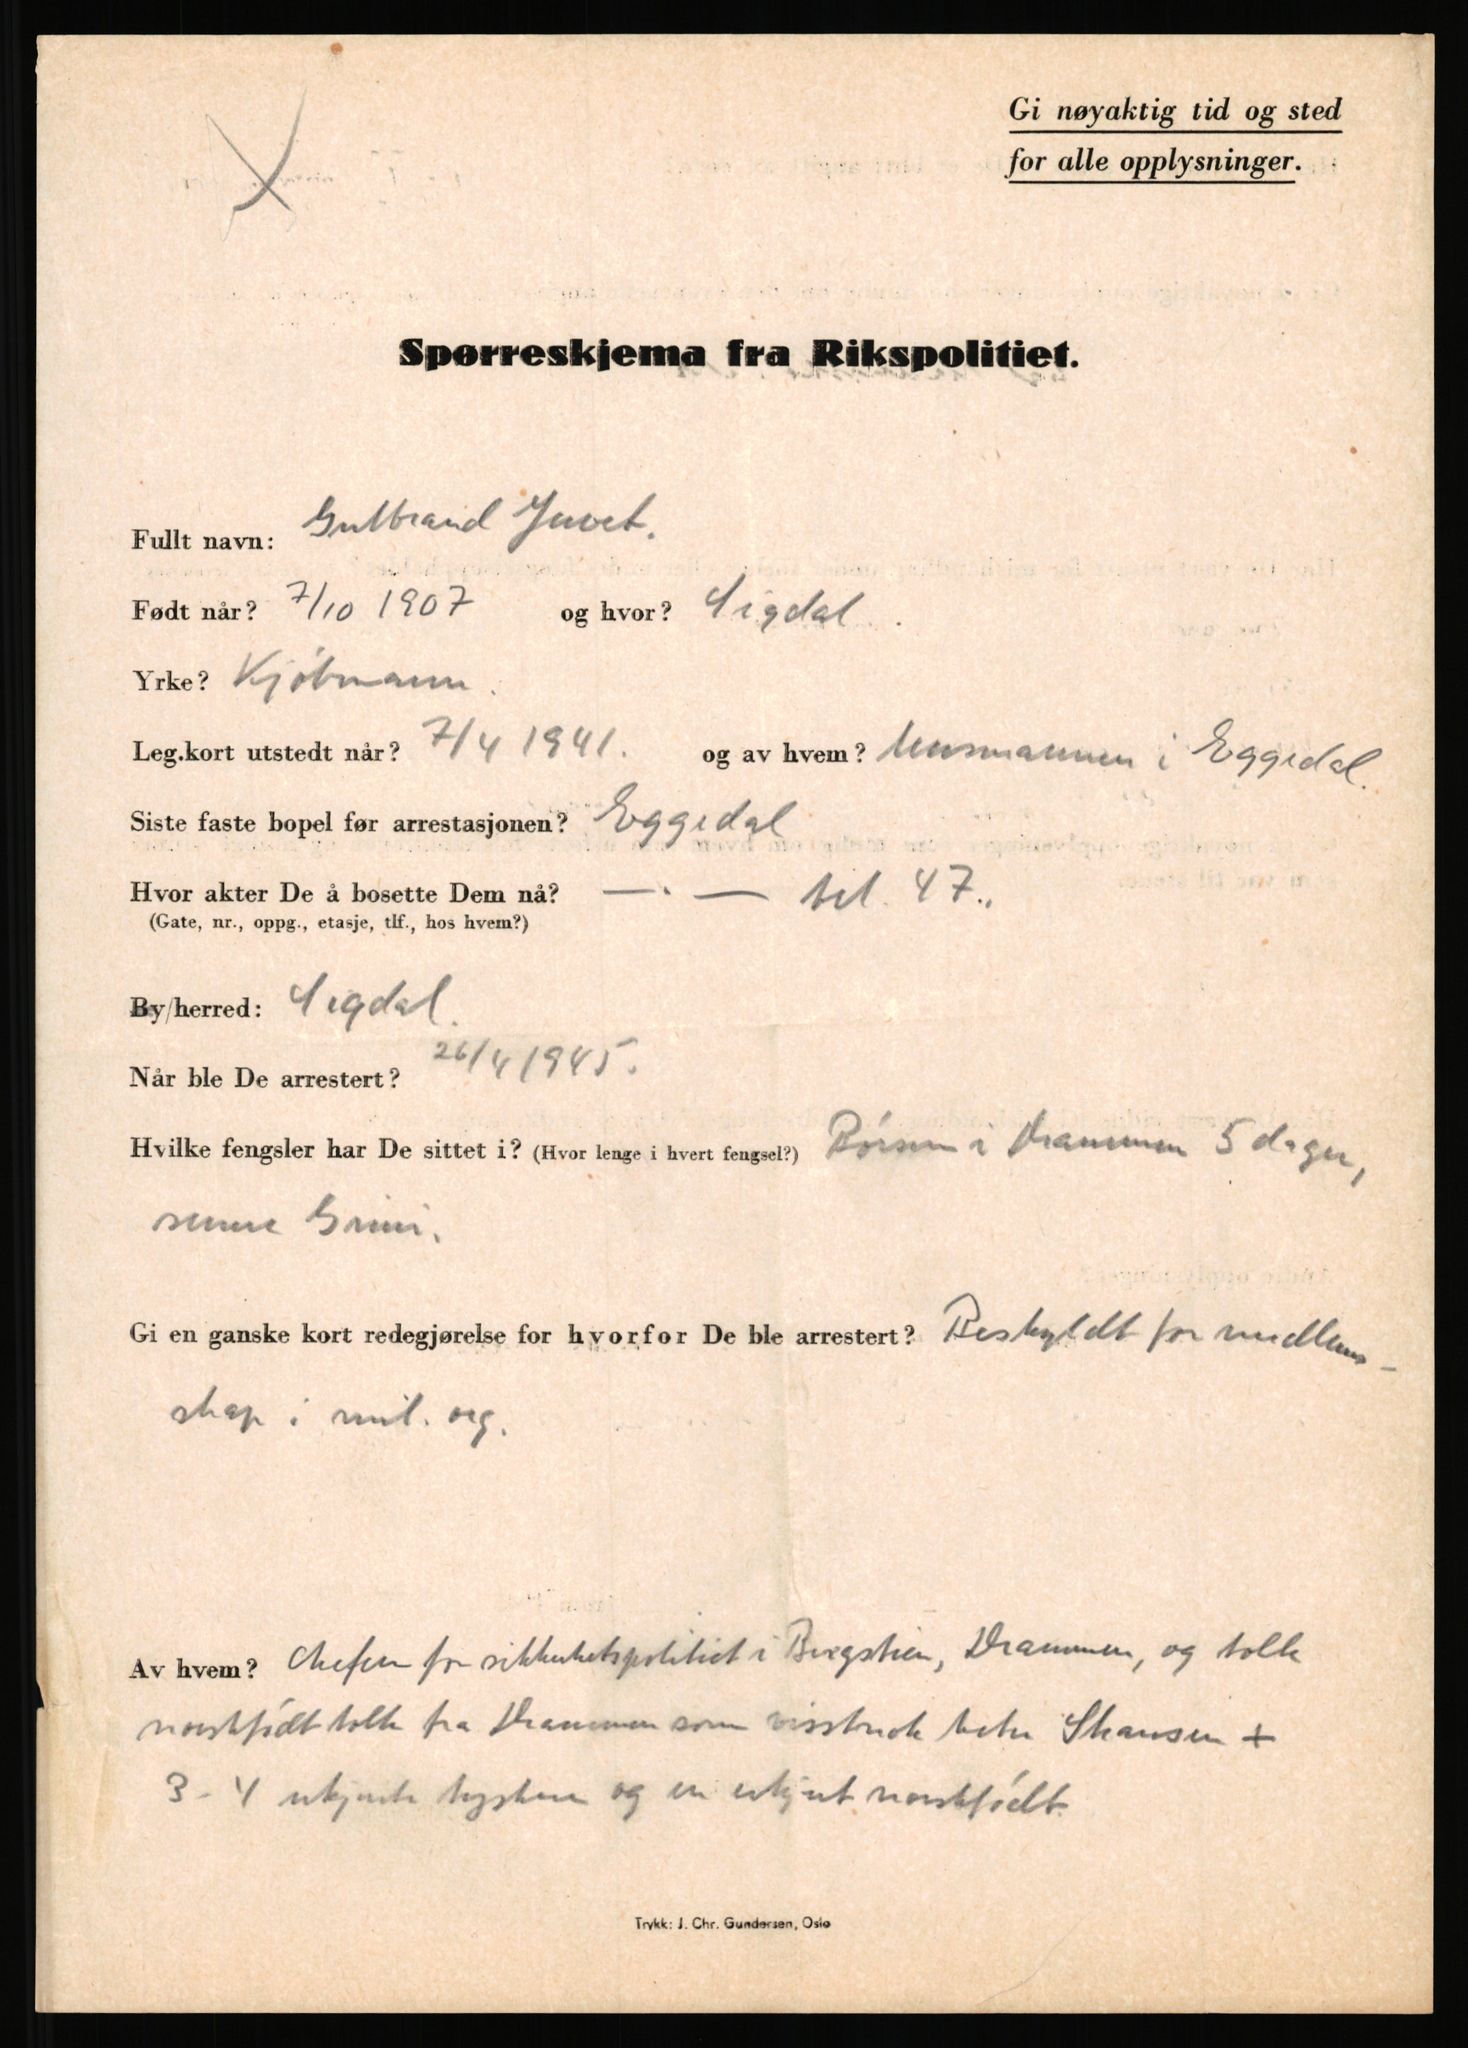 Gi nøyaktig tid og sted
for alle opplysninger.
Spørreskjema fra Rikspolitiet.
Fullt navn: Gulbrand Juvet.
Født når? 7/10 1907 og hvor? Sigdal.
Yrke? Kjøbmann.
Leg.kort utstedt når? 7/4 1941. og av hvem? lensmannen i Eggedal.
Siste faste bopel før arrestasjonen? Eggedal
Hvor akter De å bosette Dem nå? — . — tel. 47.
(Gate, nr., oppg., etasje, tlf., hos hvem?)
By/herred: Sigdal.
Når ble De arrestert? 26/4 1945.
Hvilke fengsler har De sittet i? (Hvor lenge i hvert fengsel?) Børsen i Drammen 5 dager,
senere Grini.
Gi en ganske kort redegjørelse for hvorfor De ble arrestert? Beskyldt for medlems-
skap i mil. org.
Av hvem? Chefen for sikkerhetspolitiet i Bergstien, Drammen, og tolk
norskfødt tolk fra Drammen som visstnok heter Skansen +
3-4 ukjente tyskere og en ukjent norskfødt.
Trykk: J. Chr. Gundersen, Oslo